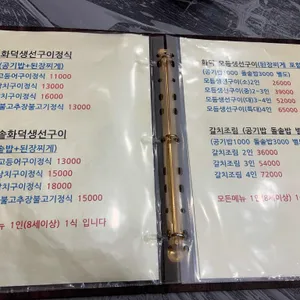 화덕생선구이정식
(공기밥+된장찌개)
고등어구이정식 11000
삼치구이정식 13000
갈치구이정식 16000
불고추장불고기정식 13000
솥화덕생선구이
솥밥+된장찌개)
고등어구이정식 13000
삼치구이정식 15000
갈치구이정식 18000
불고추장불고기정식 15000
메뉴 1인(8세이상) 1식 입니다
화덕 모듬생선구이(된장찌개 포함
(공기밥1000 돌솥밥3000 별도)
모듬생선구이(소)2인 26000
모듬생선구이(중)2~3인 39000
모듬생선구이(대)3~4인 52000
모듬생선구이(특대)4인 65000
갈치조림 (공기밥 돌솥밥 별
(공기밥1000 돌솥밥3000 별
갈치조림 2인 36000
갈치조림 3인 54000
갈치조림 4인 72000
모든메뉴 1인(8세이상) 1